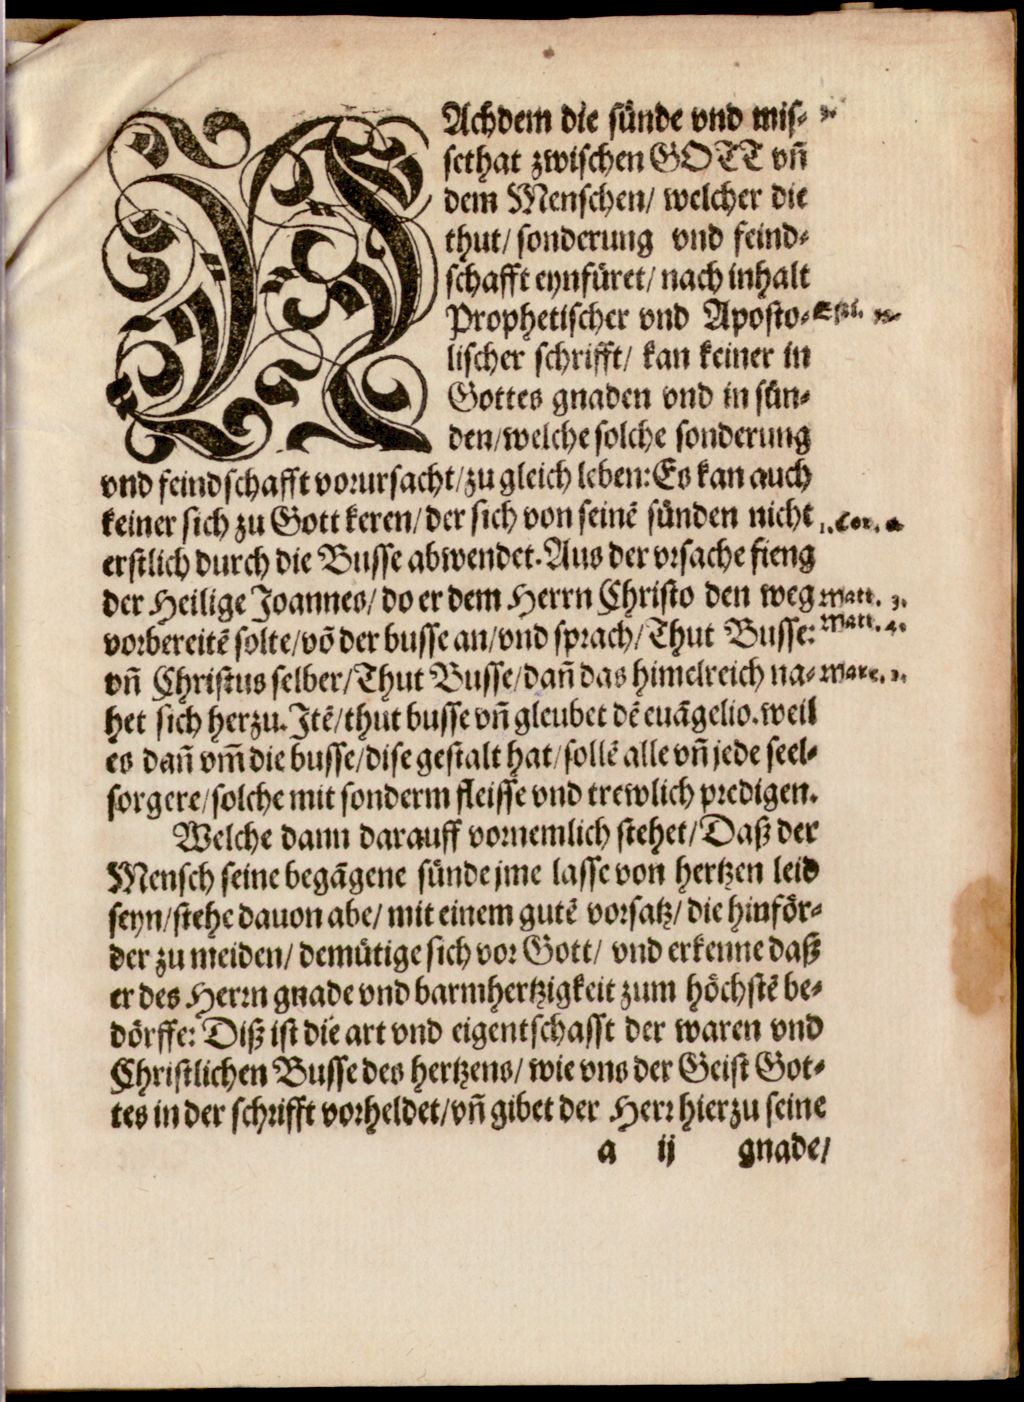 NAchdem die sünde vnd mis-
sethat zwischen GOTT vñ
dem Menschen/ welcher die
thut/ sonderung vnd feind-
schafft eynfüret/ nach inhalt
Prophetischer vnd Aposto-
lischer schrifft/ kan keiner in
Gottes gnaden vnd in sün-
den/ welche solche sonderung
vnd feindschafft vorursacht/ zu gleich leben: Es kan auch
keiner sich zu Gott keren/ der sich von seinē sünden nicht
erstlich durch die Busse abwendet. Aus der vrsache fieng
der Heilige Joannes/ do er dem Herrn Christo den weg
vorbereitē solte/ vō der busse an/ vnd sprach/ Thut Busse:
vñ Christus selber/ Thut Busse/ dañ das himelreich na-
het sich herzu. Itē/ thut busse vñ gleubet dē euāgelio. weil
es dañ vm̄ die busse/ dise gestalt hat/ sollē alle vñ jede seel-
sorgere/ solche mit sonderm fleisse vnd trewlich predigen.
Welche dann darauff vornemlich stehet/ Daß der
Mensch seine begāgene sünde jme lasse von hertzen leid
seyn/ stehe dauon abe/ mit einem gutē vorsatz/ die hinför-
der zu meiden/ demütige sich vor Gott/ vnd erkenne daß
er des Herrn gnade vnd barmhertzigkeit zum höchstē be-
dörffe: Diß ist die art vnd eigentschafft der waren vnd
Christlichen Busse des hertzens/ wie vns der Geist Got-
tes in der schrifft vorheldet/ vñ gibet der Herr hierzu seine
a ij gnade/
Cor.
Matt. 3.
Matt. 4.